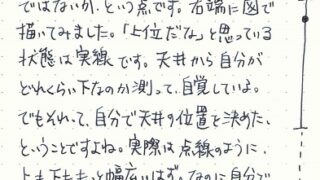 ではないか、という点です。右端に図で
描いてみました。「上位だな」と思っている
状態は実線です。天井から自分が
どれくらい下なのか測って、自覚しているよ。
でもそれって、自分で天井の位置を決めた、
ということですよね。実際は点線のように、
上も下ももっと幅広いはず。なのに自分で